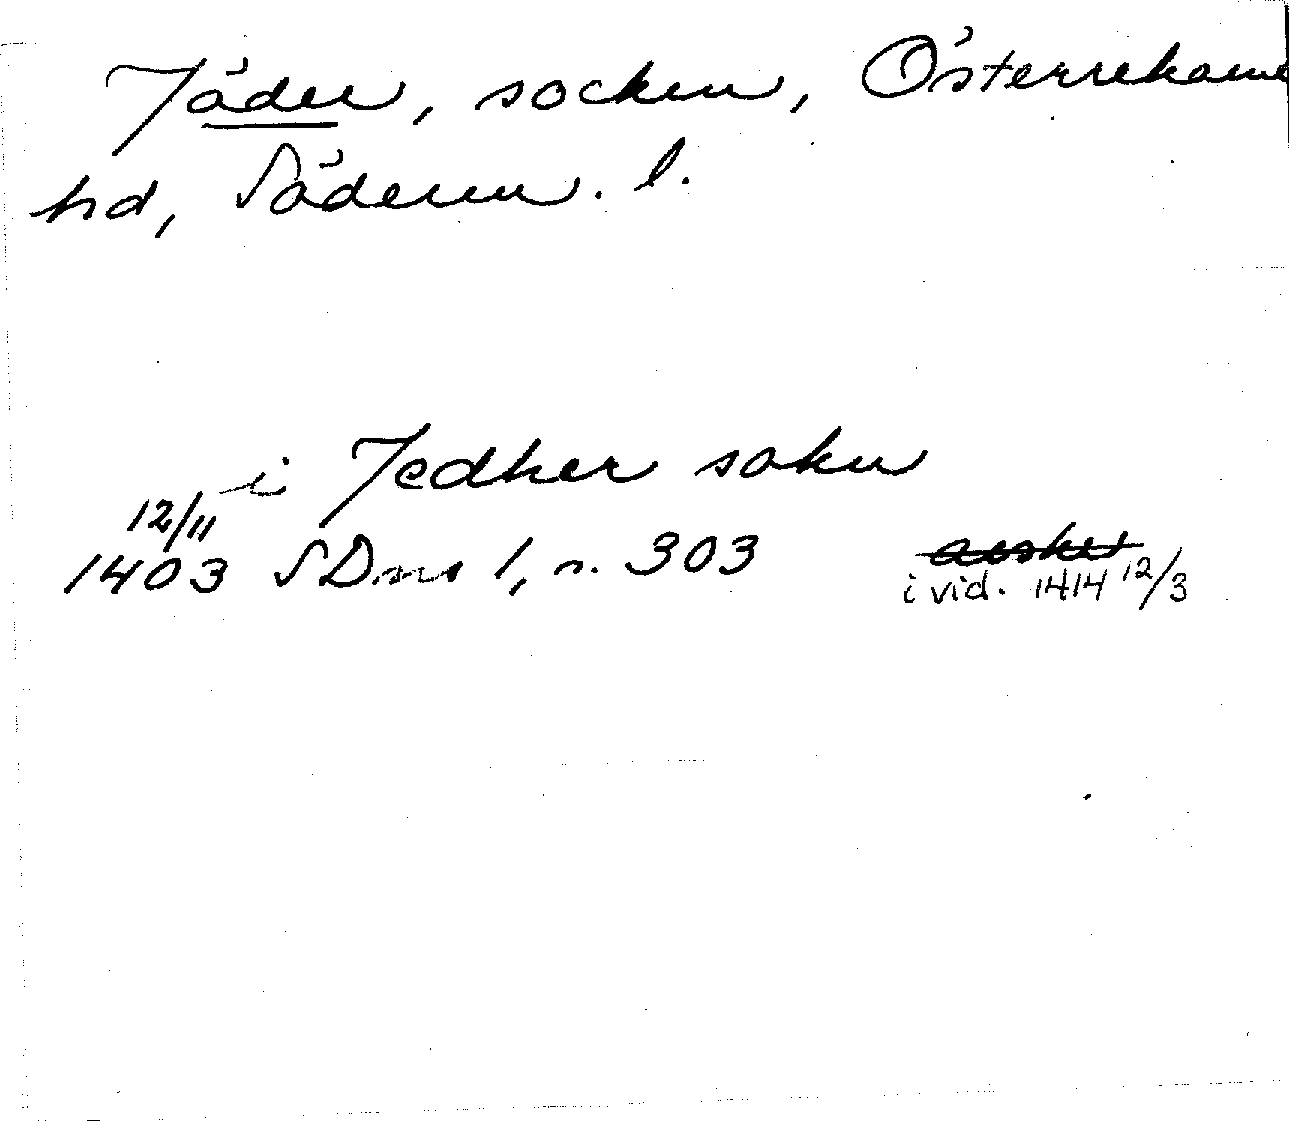 Jäder, socken, Österrekarne
hd, Söderm. l.
i Jedher sokn
12/11
1403 SDns 1, n. 303
i vid. 1414 12/3